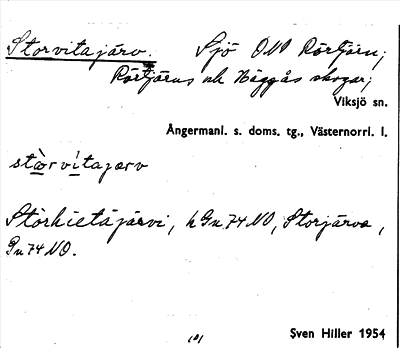 Storvitajärv. Sjö ONO Rörtjärn;
Rörtjärns och Häggås skogar;
Viksjö sn.
Ångermanl. s. doms. tg., Västernorrl. l.
stòrvìtajærv
Storhietäjärvi, h Gn 74 NO, Storjärva,
Gn 74 NO.
Sven Hiller 1954